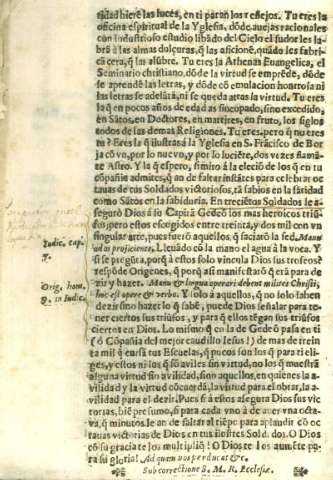 sidad hiere las luces, en ti paran los reflejos. Tu eres la
oficina espiritual de la Yglesia, dõde auejas racionales
con industrioso estudio libãdo del Cielo el sudor les la-
brã a las almas dulçuras, q̃ las aficionẽ, quãdo les fabri-
cã cera, q̃ las alũbre. Tu eres la Athenas Euangelica, el
Seminario christiano, dõde la virtud se emprẽde, dõde
se aprendẽ las letras, y dõde cõ emulacion honrosa ni
las letras se adelãtã, ni se queda atras la virtud. Tu eres
la q̃ en pocos años de edad as sincopado, sino excedido,
en Sãtos, en Doctores, en martires, en fruto, los siglos
todos de las demas Religiones. Tu eres, pero q̃ no eres
tu? Eres la q̃ ilustras â la Yglesia en S. Frãcisco de Bor
ja cõ vn, por lo nuevo, y por lo luciẽte, dos vezes flamã-
te Astro. Y la q̃ espero, si miro â la elecciõ de los q̃ en tu
cõpañia admites, q̃ an de faltar instãtes para celebrar oc
tauas de tus Soldados victoriosos, tã sabios en la sãtidad
como Sãtos en la sabiduria. En treciẽtos Soldados le a-
seguró Dios â su Capitã Gedeõ los mas heroicos triũ-
fos; pero estos escogidos entre treinta, y dos mil con vn
singular arte, pues fuerõ aquellos, q̃ saciarõ la sed, Manu
ad os projiciente, Lleuãdo cõ la mano el agua â la voca. Y
si se pregũta, porq̃ â estos solo vincula Dios sus trofeos?
respõde Origenes, q̃ porq̃ asi manifestarõ q̃ erã para de
zir y hazer. Manu & lingua operari debent milites Christi,
hoc est opere & verbo. Y solo â aquellos, q̃ no solo saben
dezir sino hazer lo q̃ sabẽ, puede Dios señalar para te-
ner ciertos sus triũfos, y para q̃ ellos tẽgan sus triũfos
ciertos en Dios. Lo mismo q̃ en la de Gedeõ pasa en ti
(ô Cõpañia del mejor caudillo Jesus!) de mas de trein
ta mil q̃ cursã tus Escuelas, q̃ pocos son los q̃ para ti eli-
ges, y estos ni los q̃ sõ aviles sin virtud, no los q̃ muestrã
alguna virtud sin avilidad, son aquellos, en quienes la a-
vilidad y la virtud cõcuerdã, la virtud para el obrar, la a-
vilidad para el dezir. Pues si â estos asegura Dios sus vic
torias, biẽ presumo, si para cada vno â de auer vna octa-
va, q̃ minutos le an de faltar al tiẽpo para aplaudir cõ oc
tauas victorias de Dios en tus ilustres Soldados. O Dios
cõ su gracia te los multipliq̃! O Dios te los aumẽte pa-
ra su gloria! Ad quem nos perducat &c.
Sub correctione S. M. R. Ecclesiæ.
Iudic. cap.
7.
Orig. hom.
9. in Iudic.